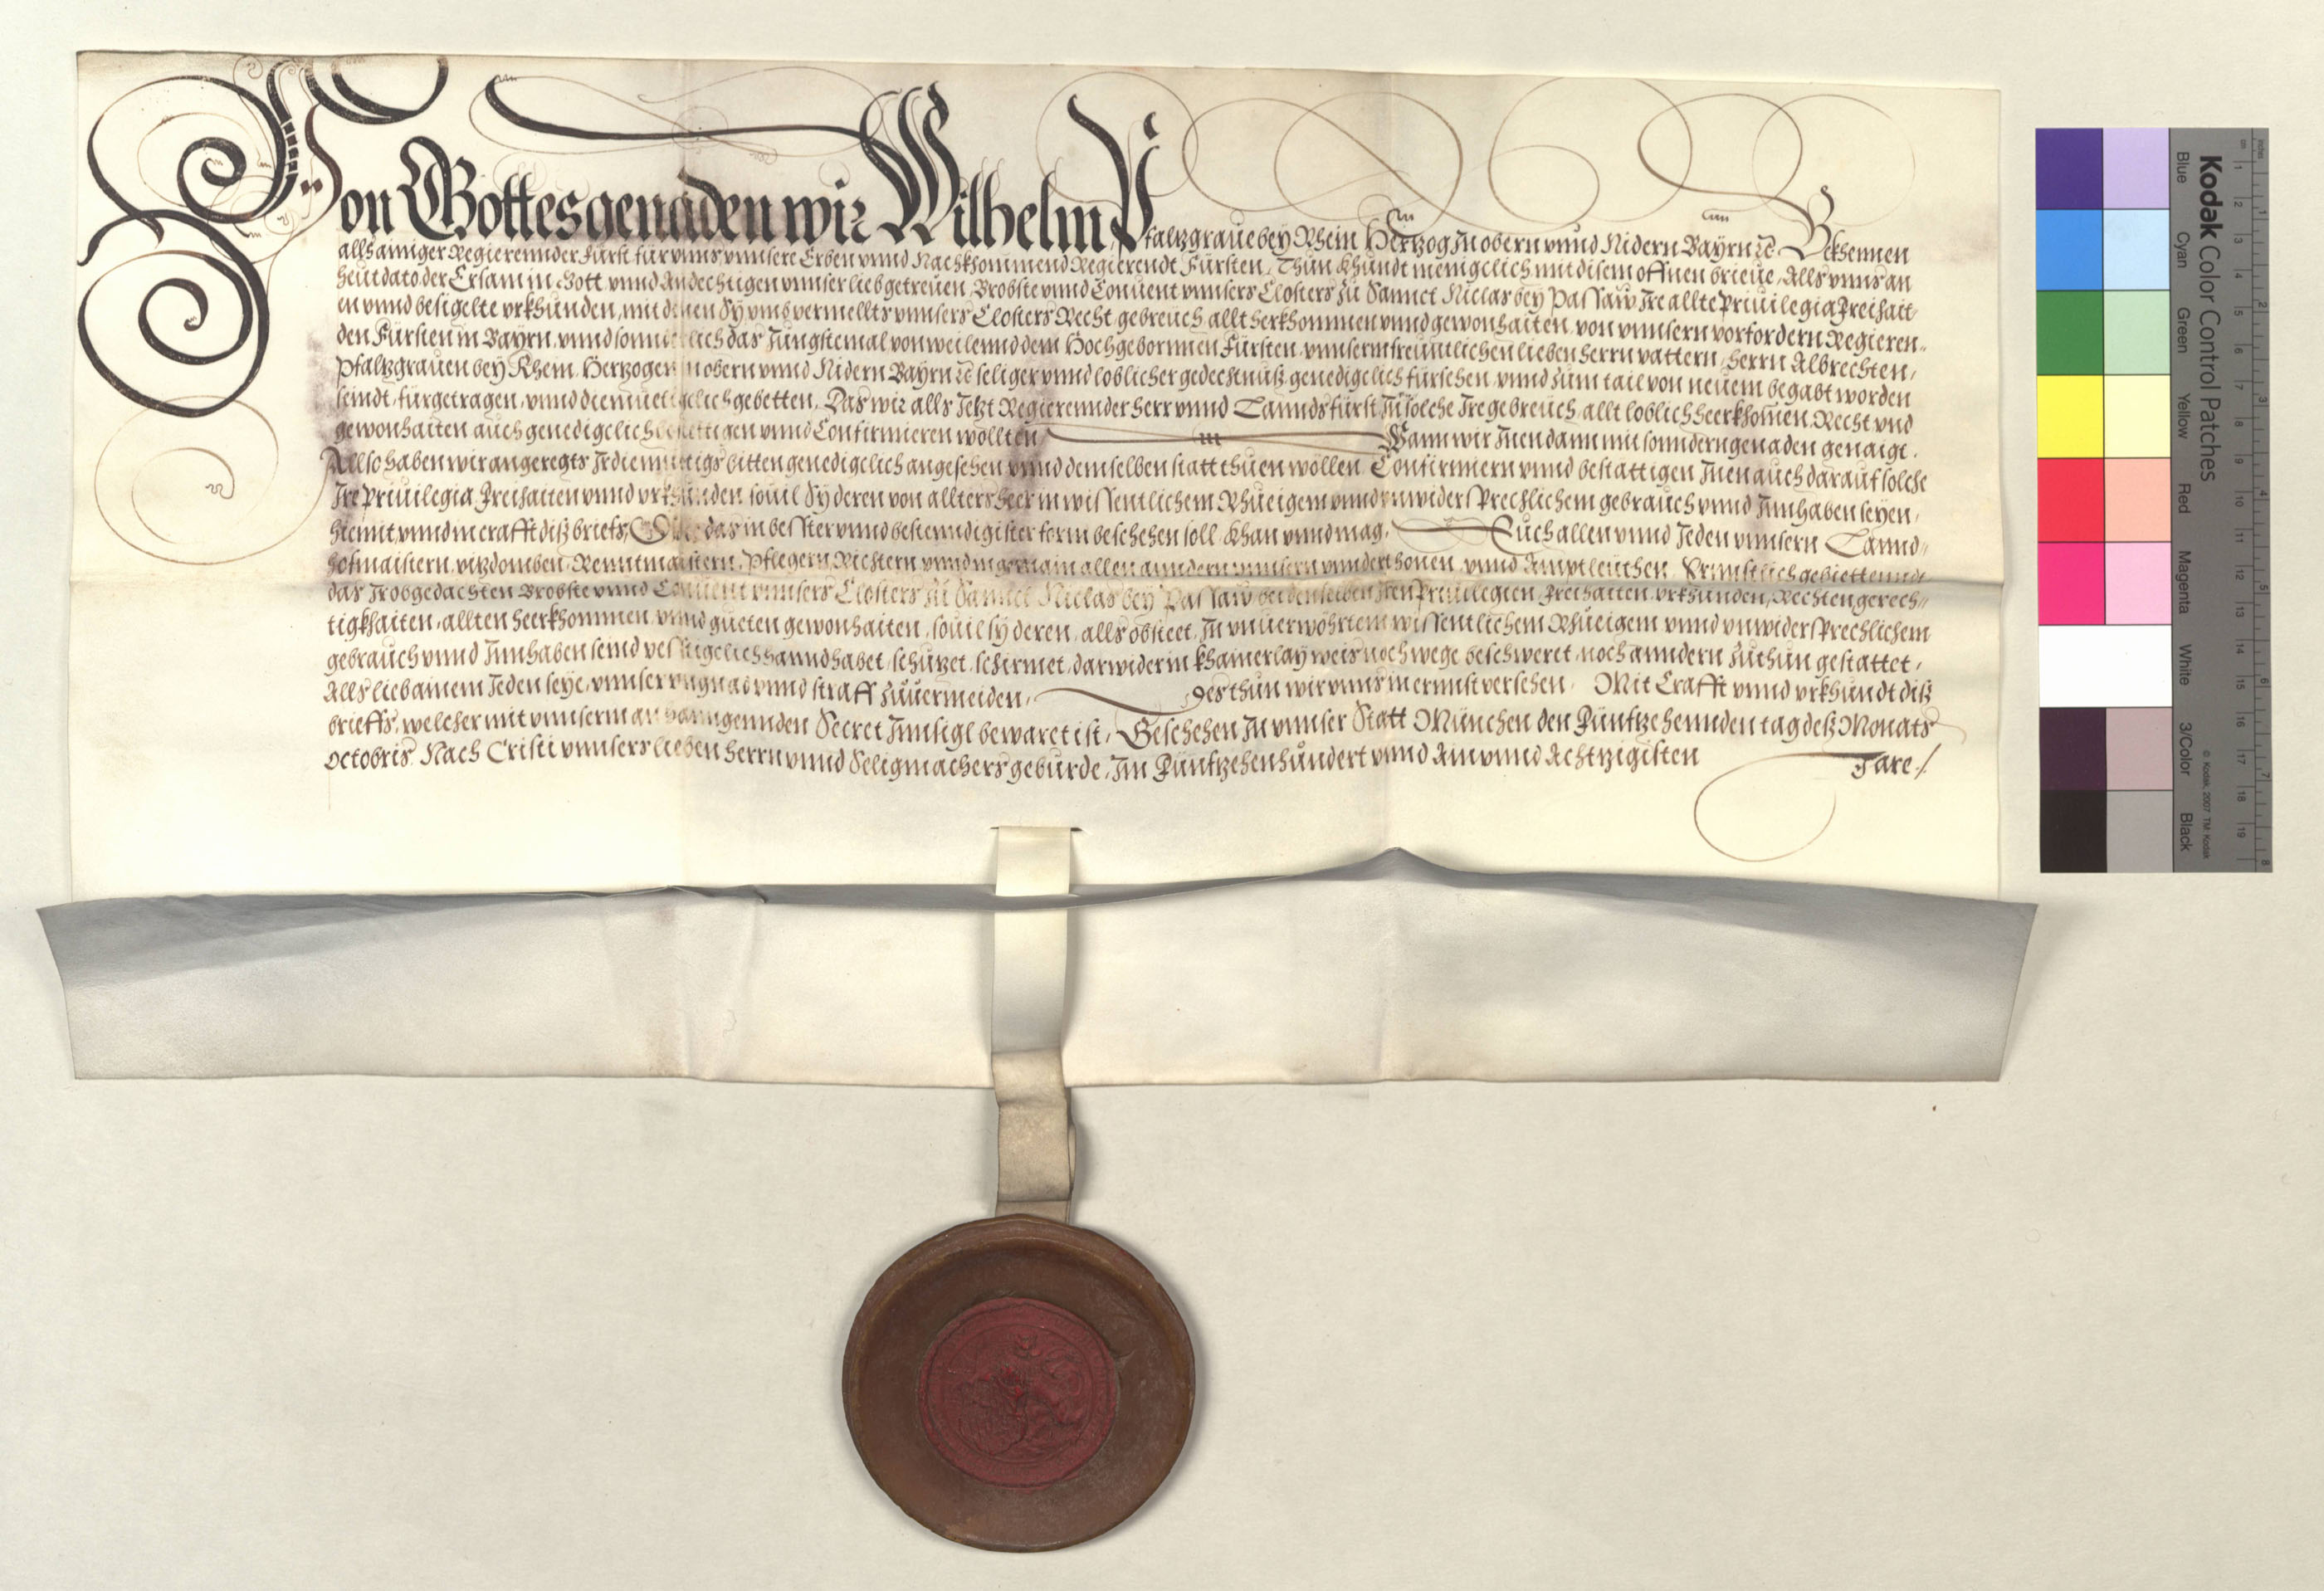 Von Gottes genaden wir Wilhelm Pfaltzgraue bey Rhein Hertzog in obern vnnd Nidern Bayrn ꝛc Bekhennen
alls ainiger Regierennder Fürst für vnns, vnnsere Erben vnnd Nachkhommend Regierendt Fürsten, Thun khundt menigclich mit disem offnen brieue, Alls vnns an
heut dato der Ersam in Gott vnnd Andechtigen vnnser lieb getreuen, Brobste vnnd Conuent vnnsers Closters zu Sannct Niclas bey Passaw, Ire allte Priuilegia Freihait
en vnnd besigelte vrkhunden, mit denen Sy vmb vermellts vnnsers Closters Recht, gebreuch, allt herkhommen vnnd gewonhaiten, von vnnsern vorfordern Regieren-
den Fürsten in Bayrn, vnnd sonnderlich das Jungstemal von weilennd dem Hochgebornnen Fürsten, vnnserm freuntlichen lieben herrn vattern, Herrn Albrechten,
Pfaltzgrauen bey Rhein, Hertzogen in obern vnnd Nidern Bayrn ꝛc seliger vnnd loblicher gedechtnuß, genedigclich fürsehen, vnnd zum tail von neuem begabt worden
seindt, fürgetragen, vnnd diemuettigclich gebetten, Das wir alls Jetzt Regierennder herr vnnd Lanndsfürst, In solche Ire gebreuch, allt loblich heerkhomen, Recht vnd
gewonhaiten auch genedigclich bestettigen vnnd Confirmieren wollten, Wann wir Inen dann mit sonndern genaden genaigt.
Allso haben wir angeregts Ir diemuetigs bitten genedigclich angesehen vnnd demselben statt thuen wöllen Confirmiern vnnd bestättigen Inen auch darauf solche
Ire Priuilegia, Freihaiten vnnd vrkhunden, souil Sy deren von allters heer in wissentlichem Rhüeigem vnnd vnwidersprechlichem gebrauch vnnd Innhaben seyen,
hiemit, vnnd in crafft diß briefs, das in bester vnnd bestenndigister form beschehen soll, khan vnnd mag, Euch allen vnnd Jeden vnnsern Lannd-
hofmaistern, vitzdomben, Renntmaistern, Pflegern, Richtern vnnd in gemain allen anndern vnnsern vnnderthonen, vnnd Amptleuthen, Ernnstlich gebiettenndt
das Ir obgedachten Brobste vnnd Conuent vnnsers Closters zu Sannct Niclas bey Passaw bei denselben Iren Priuilegien, Freihaiten, vrkhunden, Rechten gerech-
tigkhaiten, allten heerkhommen, vnnd gueten gewonhaiten, souil sy deren, alls obsteet, In vnuerwöhrtem wissentlichem Rhüeigem vnnd vnwidersprechlichem
gebrauch vnnd Innhaben seind vestigclich hanndhabet, schutzet, schirmet, darwider in khainerlay weis noch wege beschweret, noch anndern zuthun gestattet,
Alls lieb ainem Jeden seye, vnnser vngnad vnnd straff zuuermeiden, Des thun wir vnns in ernnst versehen. Mit Crafft vnnd vrkhundt diß
brieffs, welcher mit vnnserm anhanngennden Secret Innsigl bewaret ist, Geschehen In vnnser Statt München den Fünftzehennden tag deß Monats
Octobris Nach Cristi vnnsers lieben herrn vnnd Seligmachers geburde, Im Fünftzehenhundert vnnd Ain vnnd Achtzigisten Jare./.
Kodak Color Control Patches
Blue Cyan Green Yellow Red Magenta White 3/Color Black
© Kodak, 2007 TM: Kodak
cm 1 2 3 4 5 6 7 8 9 10 11 12 13 14 15 16 17 18 19
inches 1 2 3 4 5 6 7 8